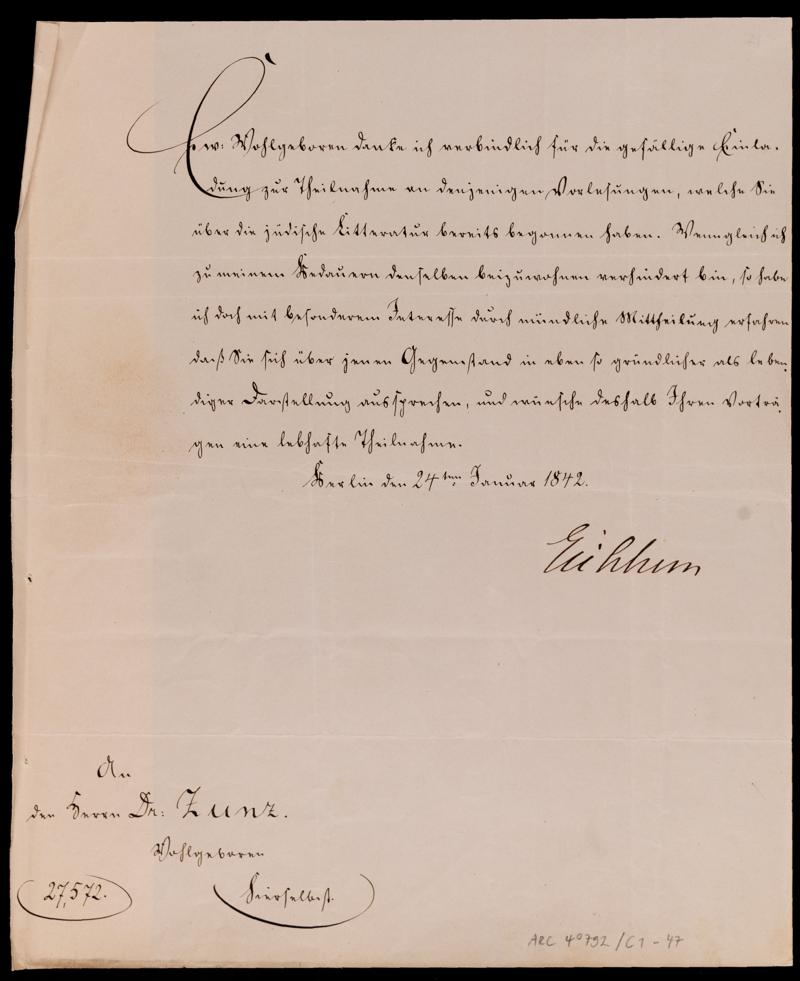 Ew: Wohlgeboren danke ich verbindlich für die gefällige Einla-
dung zur Theilnahme an denjenigen Vorlesungen, welche Sie
über die jüdische Litteratur bereits begonnen haben. Wenngleich ich
zu meinem Bedauern denselben beizuwohnen verhindert bin, so habe
ich doch mit besonderem Interesse durch mündliche Mittheilung erfahren
daß Sie sich über jenen Gegenstand in eben so gründlicher als leben-
diger Darstellung aussprechen, und wünsche deshalb Ihren Vorträ-
gen eine lebhafte Theilnahme.
Berlin den 24ten Januar 1842.
Eichhorn
An
den Herrn Dr: Zunz.
Wohlgeboren
27,572.
hierselbst.
ARC 4°792/C1-47